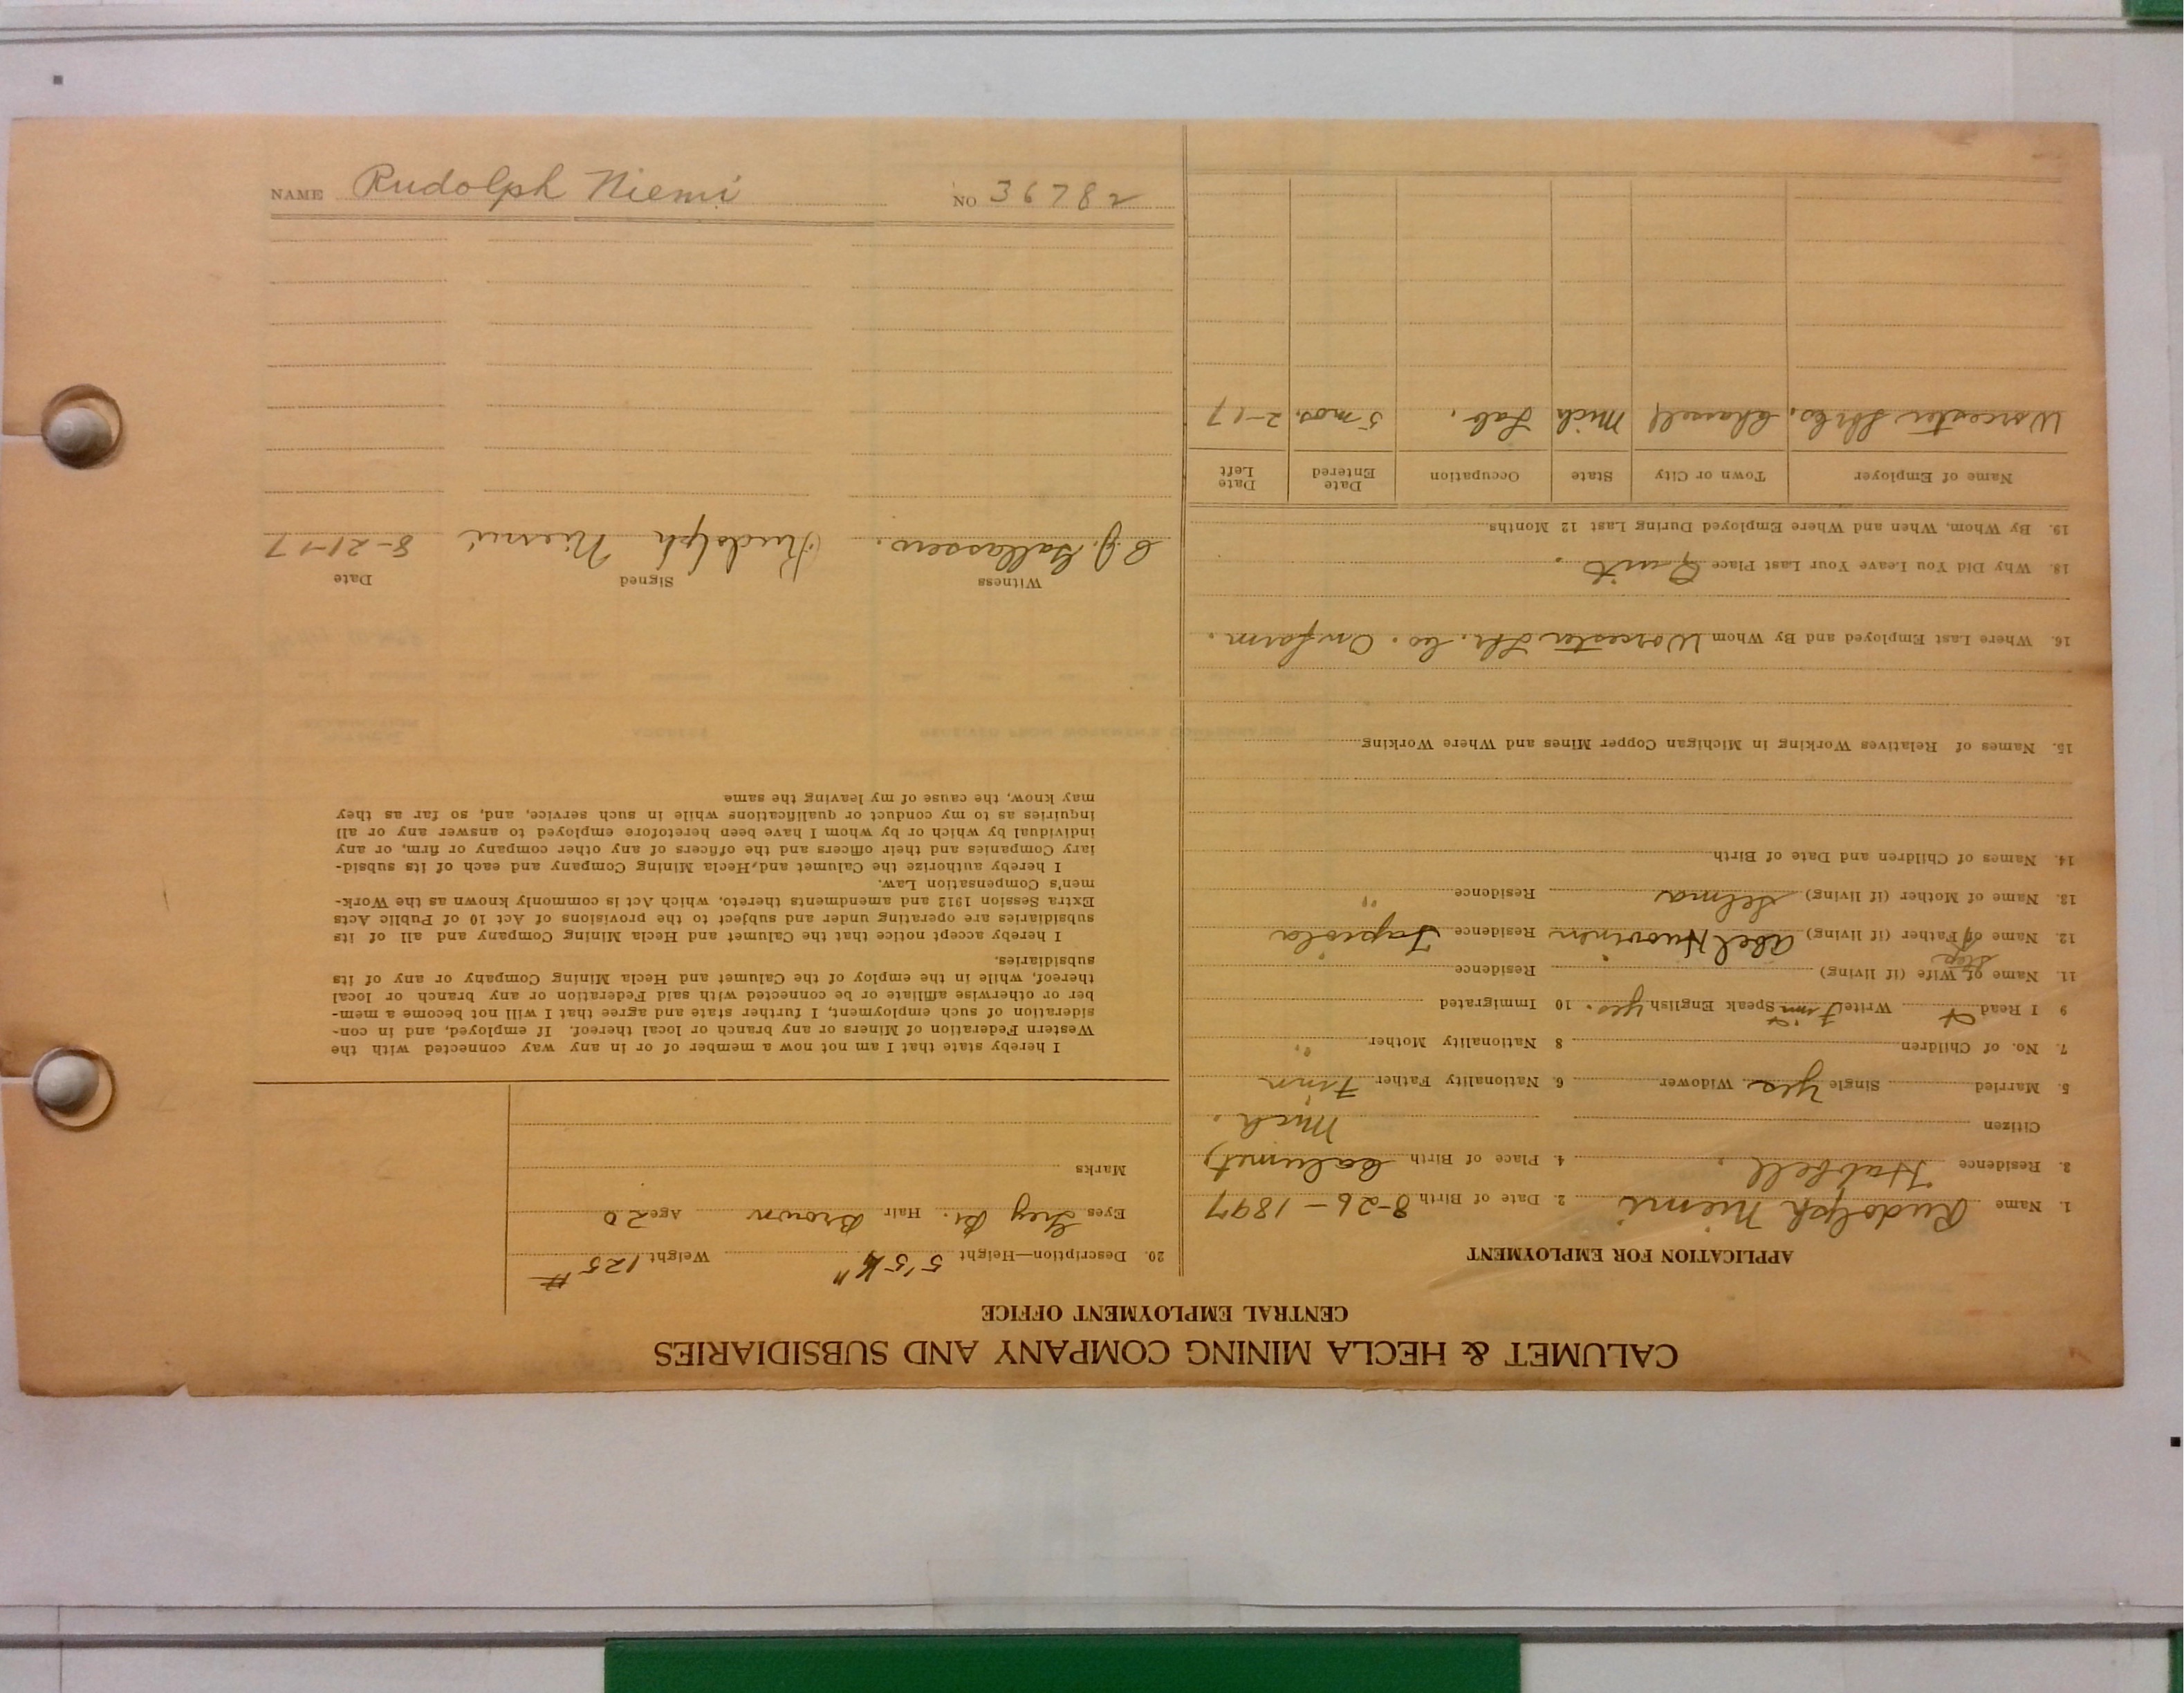 CALUMET & HECLA MINING COMPANY AND SUBSIDIARIES
CENTRAL EMPLOYMENT OFFICE
APPLICATION FOR EMPLOYMENT
1. Name Rudolph Niemi 2. Date of Birth 8-26-1897
3. Residence Hubbell. 4. Place of Birth Calumet,
Citizen Mich.
5. Married Single Yes Widower 6. Nationality Father Finn
7. No. of Children 8 Nationality Mother "
9 I Read Write Finn Speak English Yes. 10 Immigrated
11. Name of Wife (if living) Residence
Step
12. Name of Father (if living) Abel Huovinen Residence Tapiola
13. Name of Mother (if living) Selma Residence "
14. Names of Children and Date of Birth
15. Names of Relatives Working in Michigan Copper Mines and Where Working
16. Where Last Employed and By Whom Worcester Lbr. Co. On farm.
18. Why Did You Leave Your Last Place Quit.
19. By Whom, When and Where Employed During Last 12 Months
Name of Employer Town or City State Occupation Date Entered Date Left
Worcester Lbr Co. Chassell Mich Lab. 5 mos. 2-17
20. Description—Height 5'5¼" Weight 125#
Eyes Grey Bl. Hair Brown Age 20
Marks
I hereby state that I am not now a member of or in any way connected with the
Western Federation of Miners or any branch or local thereof. If employed, and in con-
sideration of such employment, I further state and agree that I will not become a mem-
ber or otherwise affiliate or be connected with said Federation or any branch or local
thereof, while in the employ of the Calumet and Hecla Mining Company or any of its
subsidiaries.
I hereby accept notice that the Calumet and Hecla Mining Company and all of its
subsidiaries are operating under and subject to the provisions of Act 10 of Public Acts
Extra Session 1912 and amendments thereto, which Act is commonly known as the Work-
men's Compensation Law.
I hereby authorize the Calumet and Hecla Mining Company and each of its subsid-
iary Companies and their officers and the officers of any other company or firm, or any
individual by which or by whom I have been heretofore employed to answer any or all
inquiries as to my conduct or qualifications while in such service, and, so far as they
may know, the cause of my leaving the same
Witness Signed Date
Rudolph Niemi 8-21-17
NAME Rudolph Niemi NO 36782